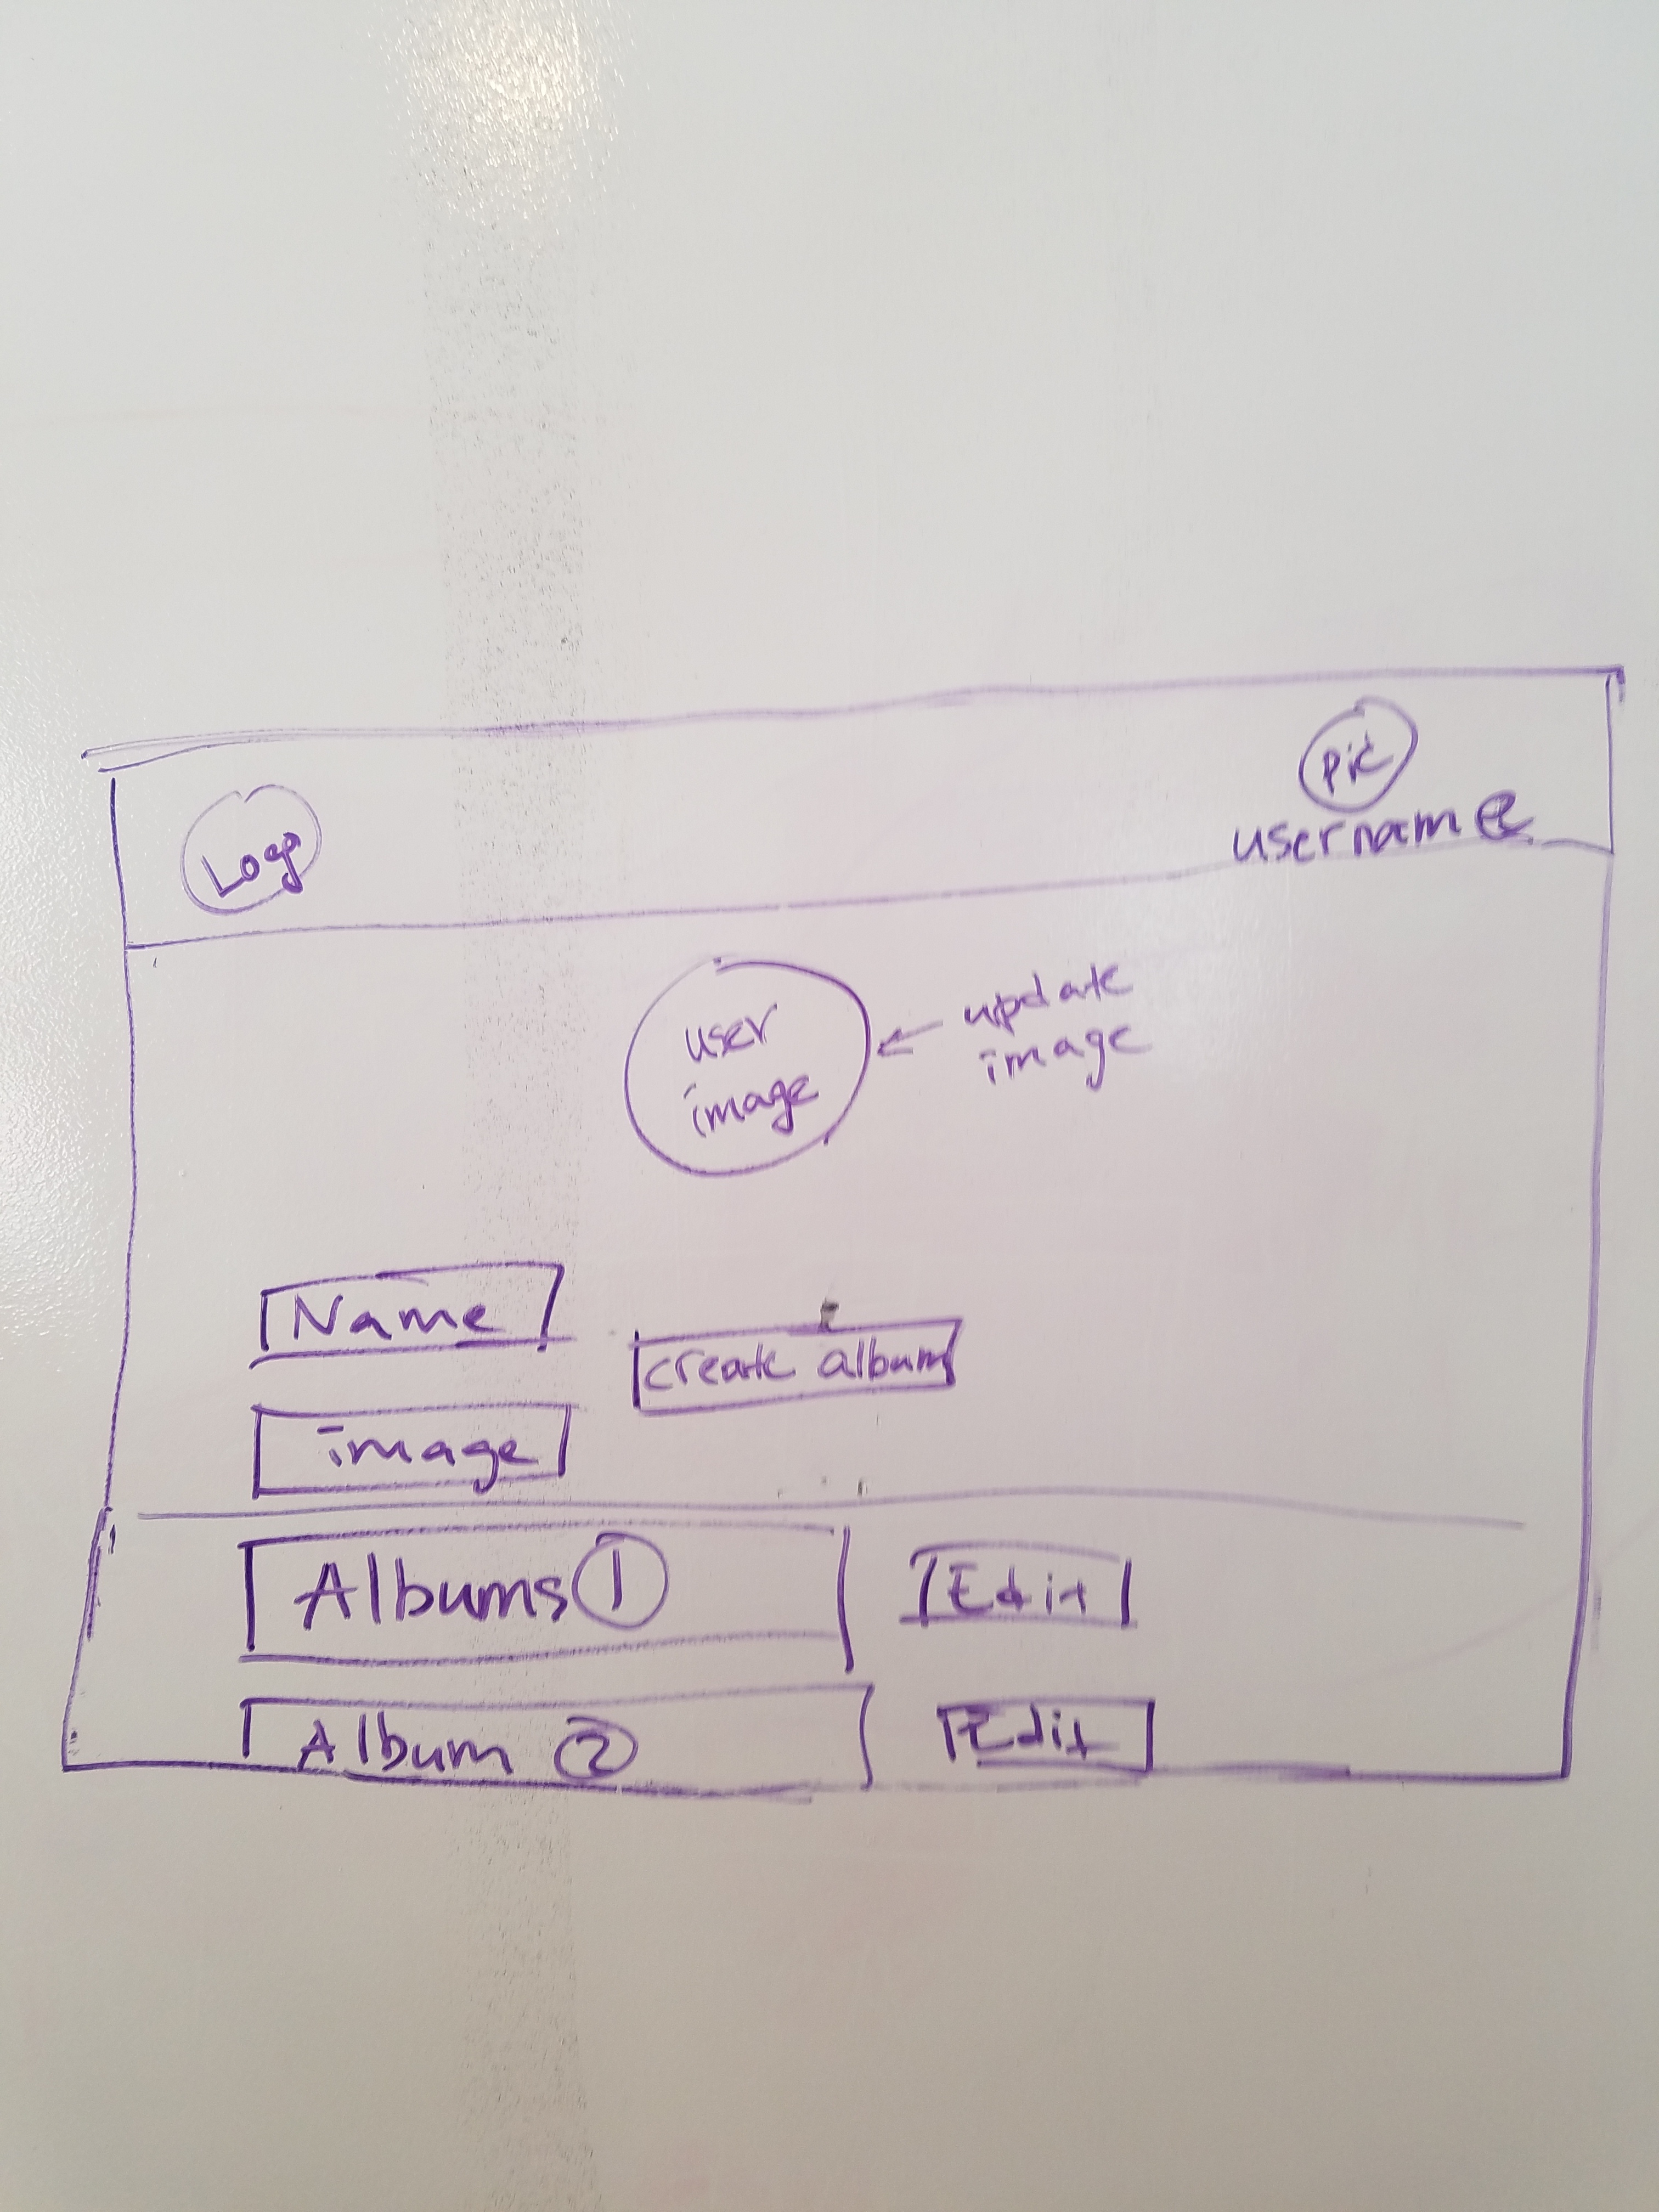 Logo
pic
username
user
image
update
image
Name
create album
image
Albums 1
Edit
Album 2
Edit